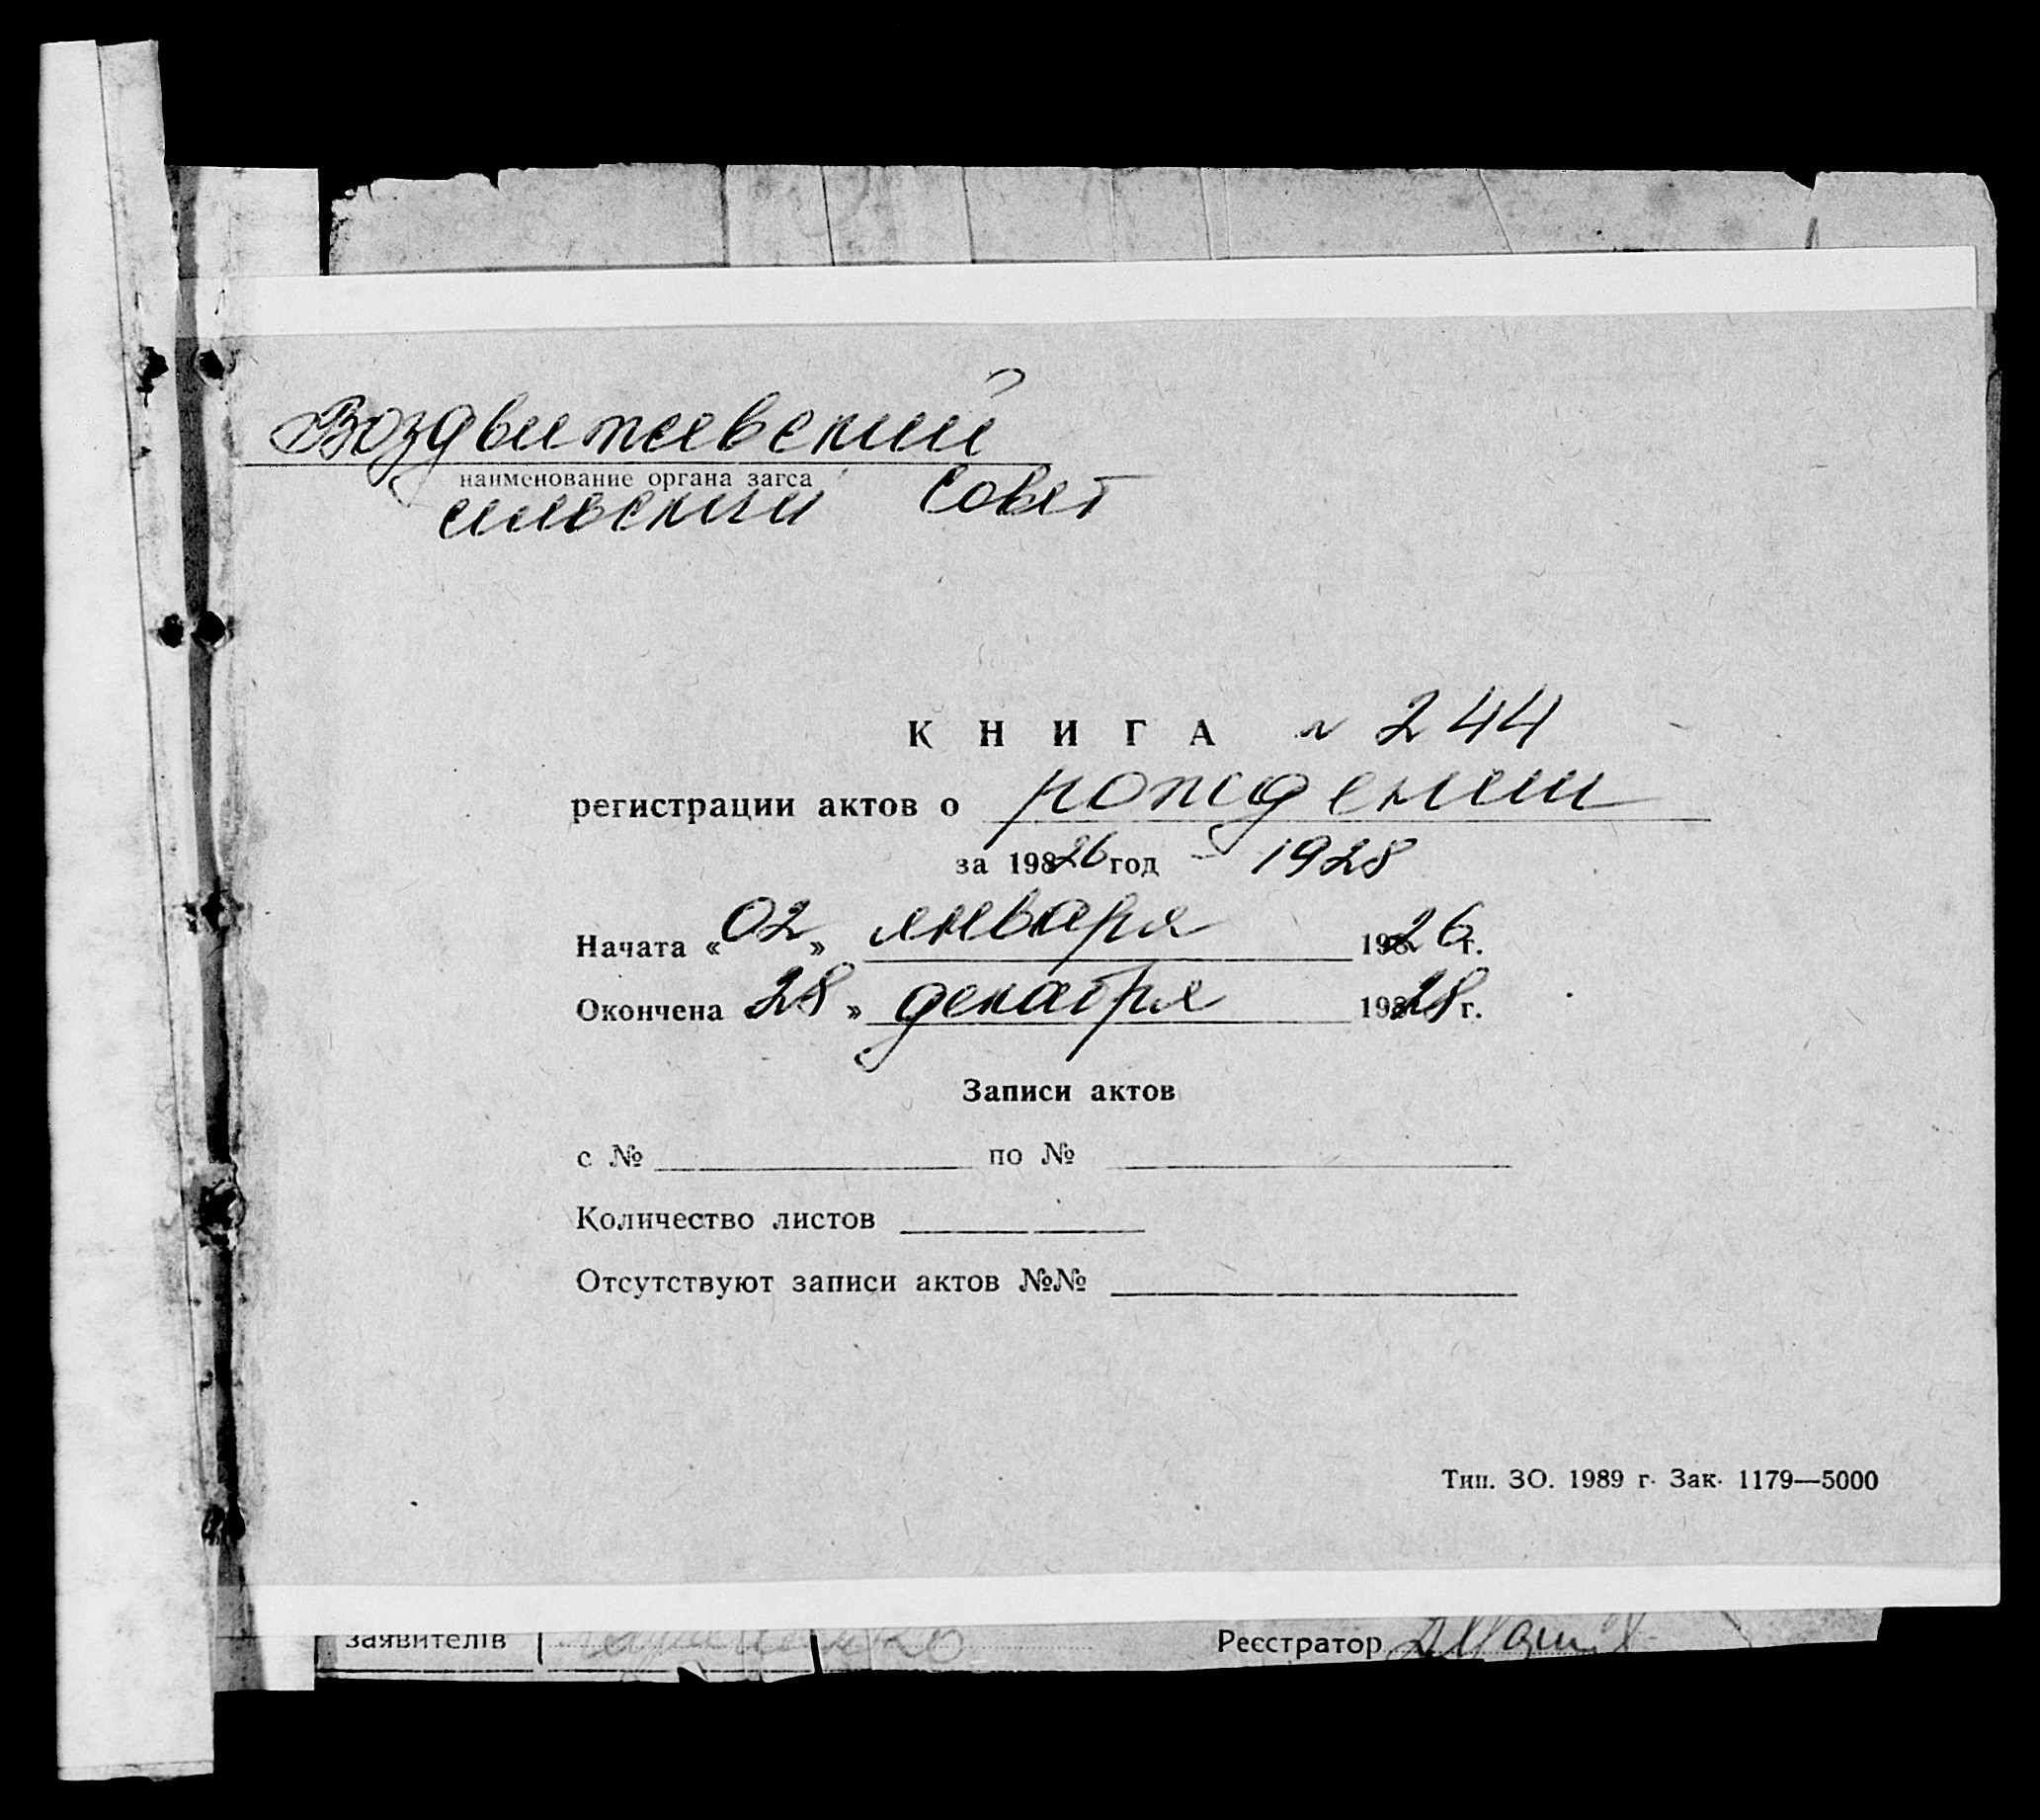 Воздвижевский
наименование органа загса
сельский совет
КНИГА № 244
регистрации актов о рождении
за 1926 год - 1928
Начата «02» января 1926 г.
Окончена 28 » декабря 1928 г.
Записи актов
с № по №
Количество листов
Отсутствуют записи актов №№
Тип. ЗО. 1989 г. Зак. 1179—5000
заявителів
Реєстратор